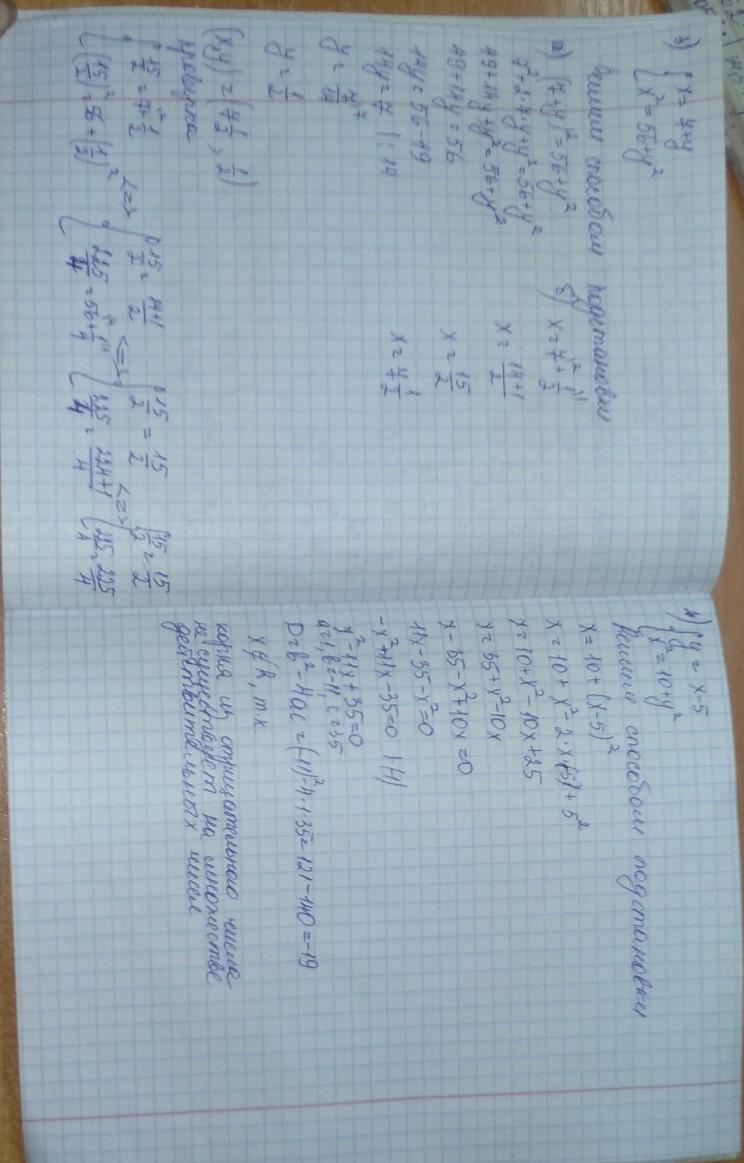 3) { x = 7+y
x² = 56+y²
Решим способом подстановки
а) (7+y)² = 56+y²
7²+2·7·y+y² = 56+y²
49+14y+y² = 56+y²
49+14y = 56
14y = 56-49
14y = 7 |:14
y = 7/14
y = 1/2
б) x = 7+1/2
x = 14+1/2
x = 15/2
x = 7 1/2
(x;y) = (7 1/2 ; 1/2)
проверка
{ 15/2 = 7+1/2 <=> { 15/2 = 14+1/2 <=> { 15/2 = 15/2 <=> { 15/2 = 15/2
(15/2)² = 56+(1/2)² 225/4 = 56+1/4 225/4 = 224+1/4 225/4 = 225/4
4) { y = x-5
x = 10+y²
Решим способом подстановки
x = 10+(x-5)²
x = 10+x²-2·x·(5)+5²
x = 10+x²-10x+25
x = 35+x²-10x
x-35-x²+10x = 0
11x-35-x² = 0
-x²+11x-35 = 0 |(-1)
x²-11x+35 = 0
a=1, b=-11 c=35
D = b²-4ac = (-11)²-4·1·35 = 121-140 = -19
x∉R, т.к.
корня из отрицательного числа
не существует на множестве
действительных чисел